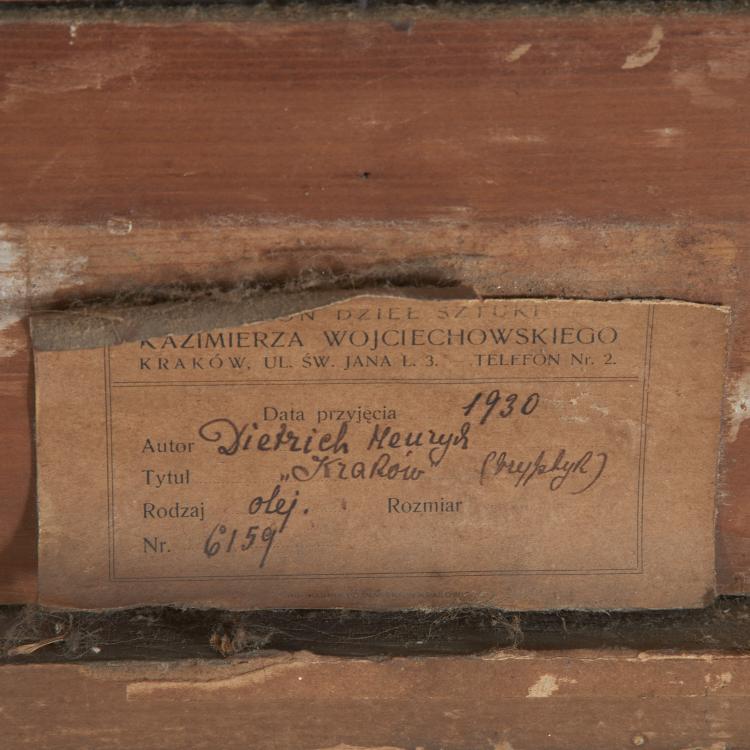 DZIEŁ SZTUKI
KAZIMIERZA WOJCIECHOWSKIEGO
KRAKÓW, UL. ŚW. JANA L. 3. TELEFON Nr. 2.
Data przyjęcia 1930
Autor Dietrich Henryk
Tytuł „Kraków" (tryptyk)
Rodzaj olej. Rozmiar
Nr. 6159